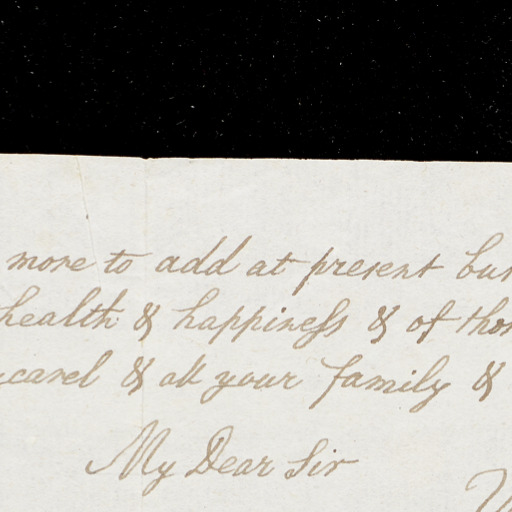 more to add at present
health & happiness & of
& all your family &
My Dear Sir